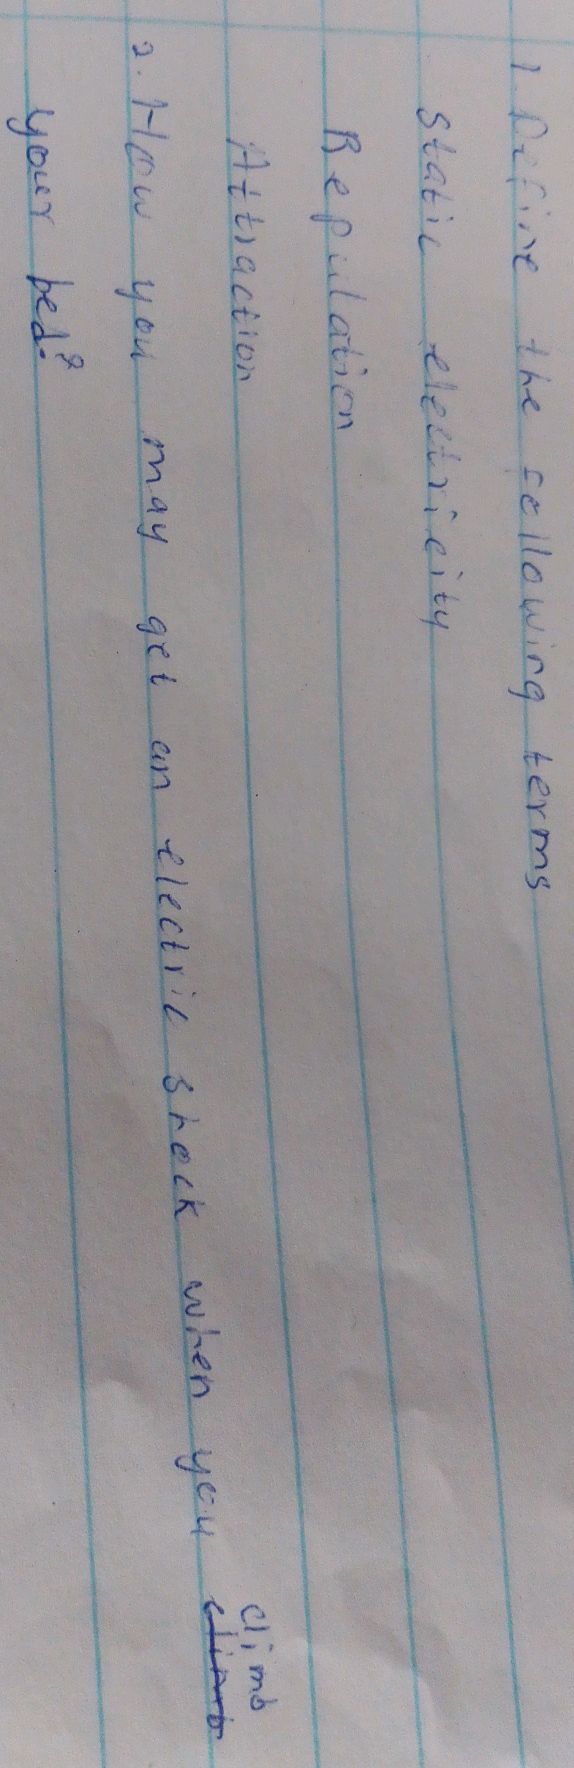 1. Define the following terms
Static electricity
Repulation
Attraction
2. How you may get an electric shock when you climb
your bed?